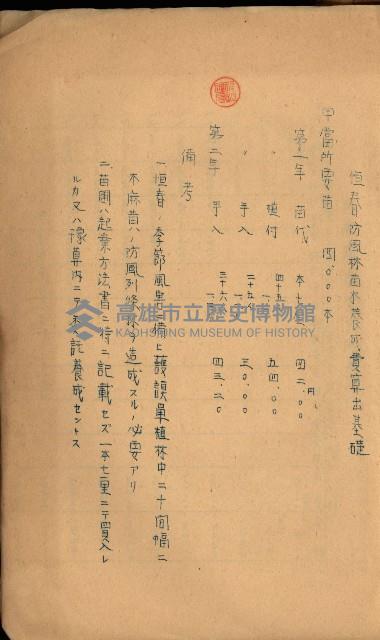 恒春防風林苗木養成費算出基礎
甲當所要苗 四〇〇〇本
第一年 苗代 本七 円 四二、〇〇
〃 植付 四十五 五四、〇〇
〃 手入 二十五 三〇、〇〇
第二年 手入 三十六 四三、二〇
備考
一、恒春ノ季節風害ニ備ヘ護謨巣植林中ニ十間幅ニ
木麻黄ハノ防風列ヲ造成スルノ必要アリ
二、苗圃ハ起業方法書ニ特ニ記載セズ一本七厘ニテ買入レ
ルカ又ハ豫算内ニテ託養成セントス
高雄市立歷史博物館
KAOHSIUNG MUSEUM OF HISTORY